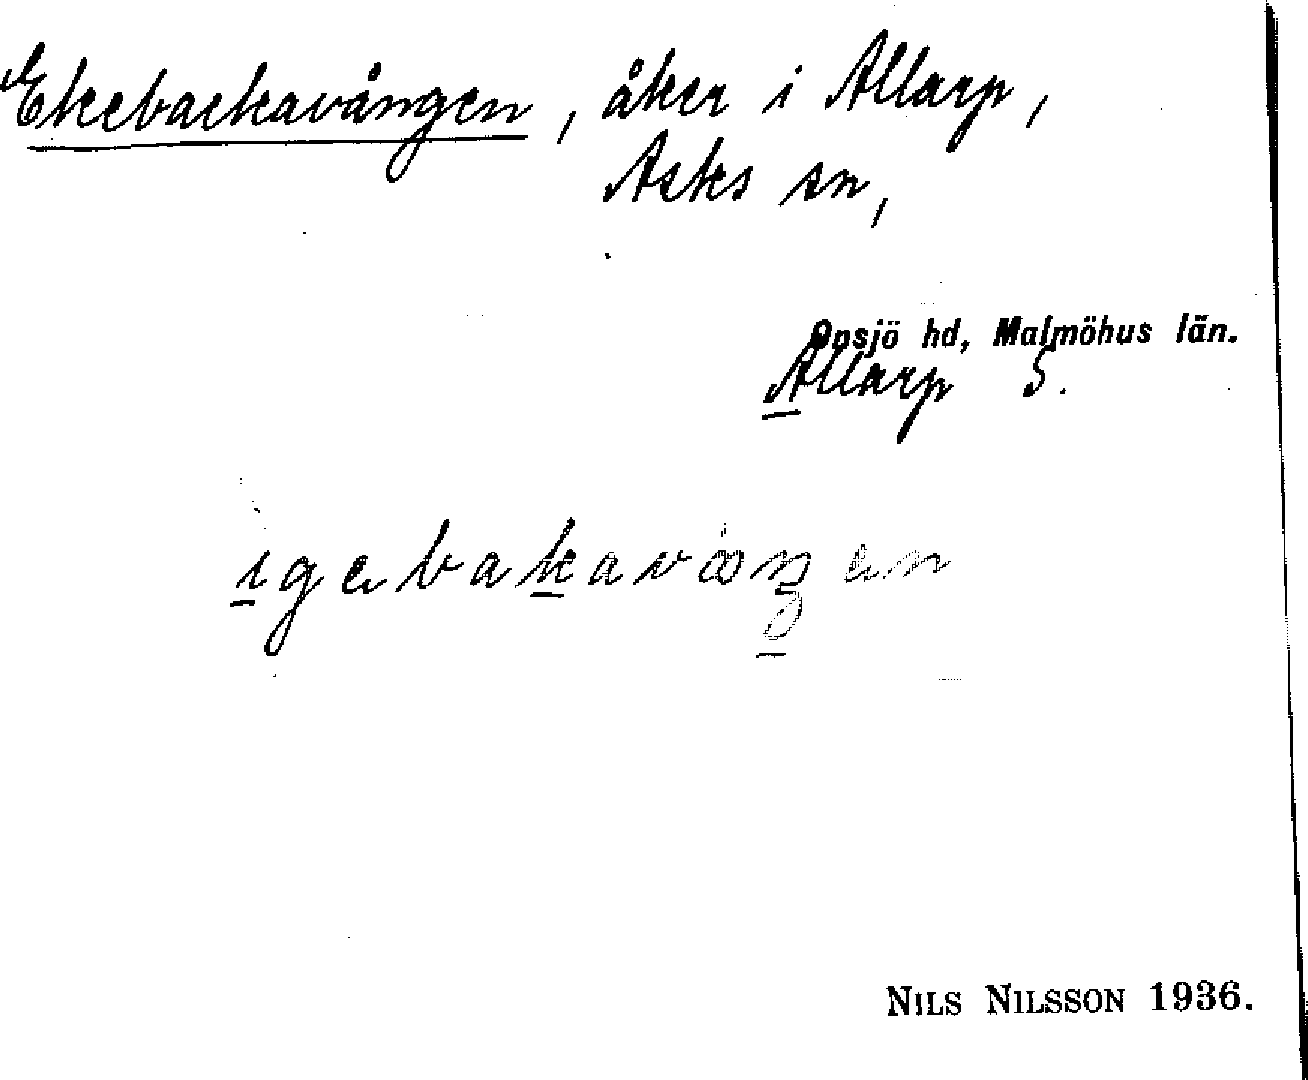 Ekebackavången, åker i Allarp,
Asks sn,
Onsjö hd, Malmöhus län.
Allarp 5.
igebakavåŋen
NILS NILSSON 1936.